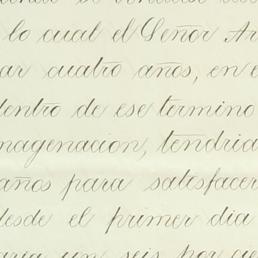 lo cual el Señor Ar
ar cuatro años, en e
dentro de ese termino
nagenacion, tendria
años para satisfacer
desde el primer dia
aria un seis por cie